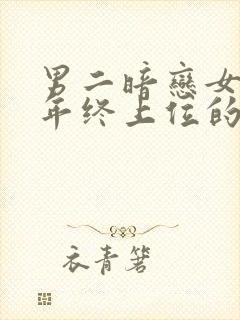 男二暗戀女
年终上位的
衣青箬